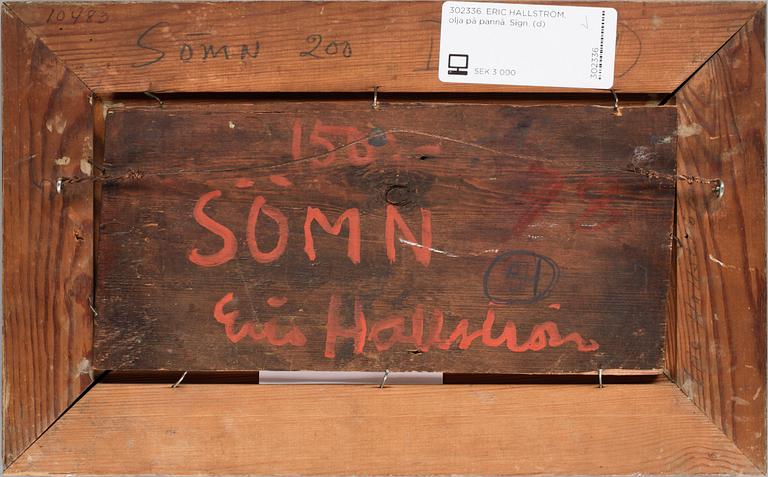 10483
SÖMN 200
302336. ERIC HALLSTRÖM,
olja på pannå. Sign. (d)
SEK 3 000
302336
150:-
78
SÖMN
51
Eric Hallström